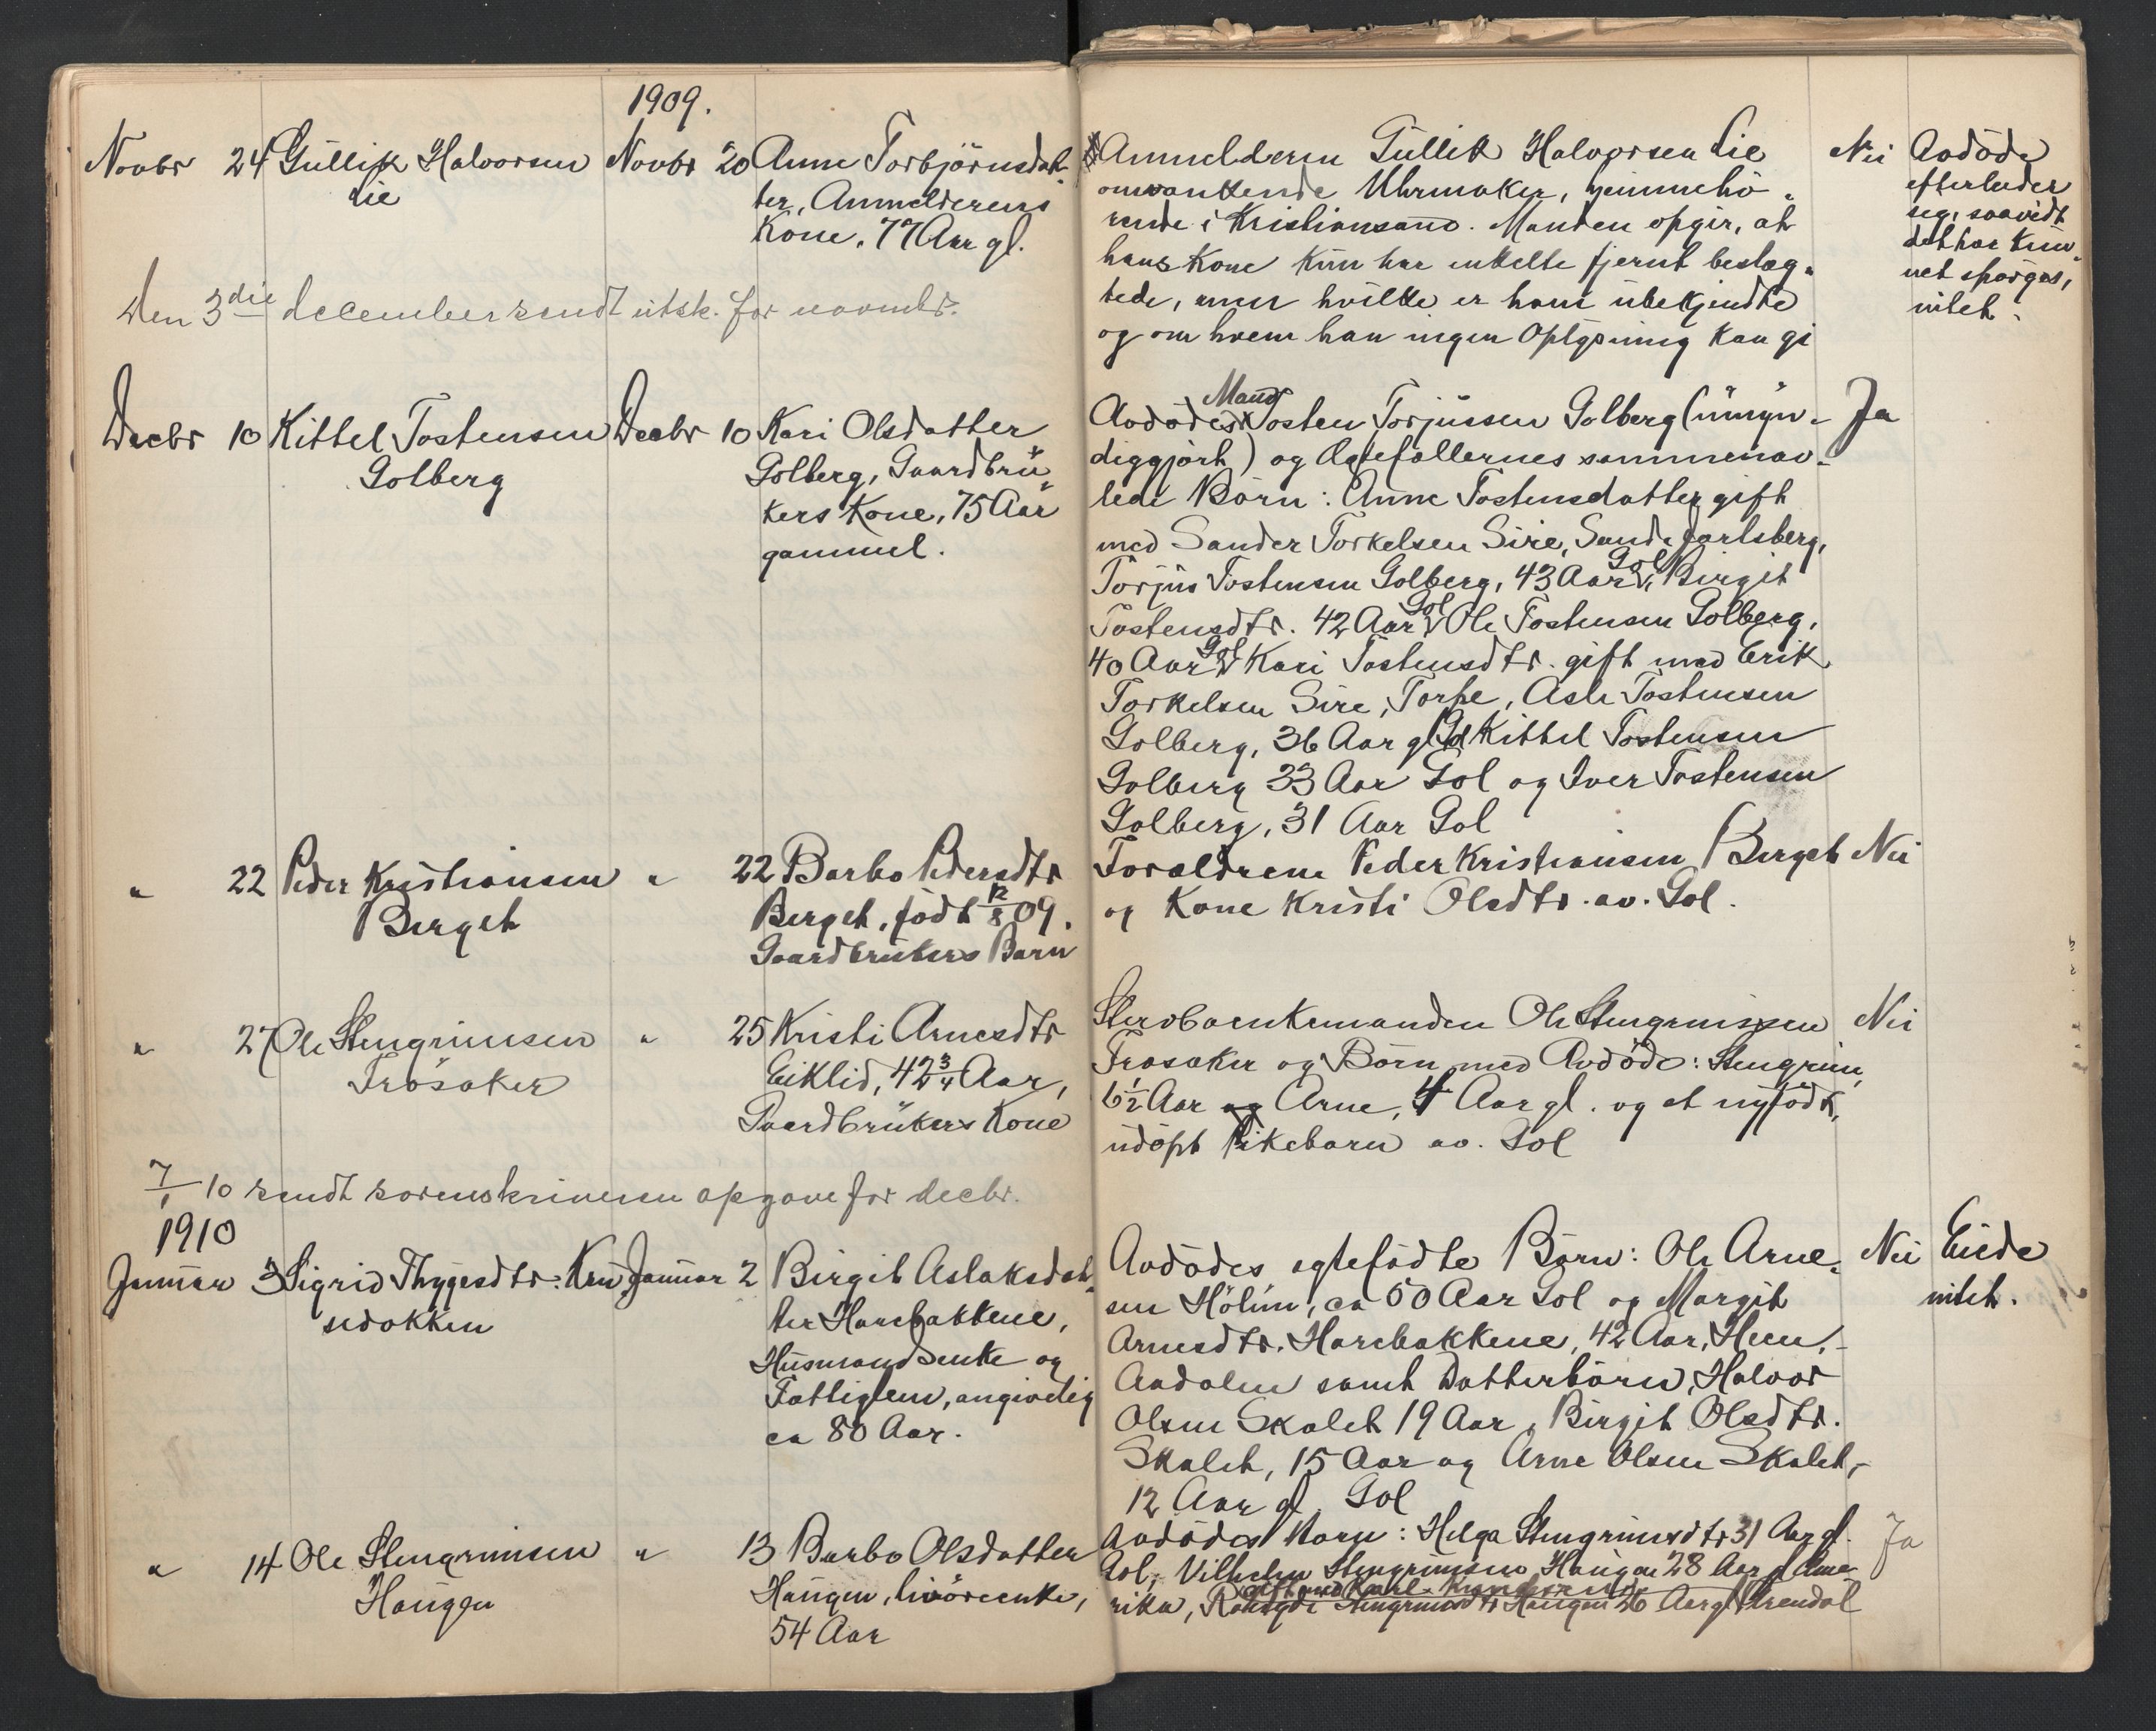 1909.
Novbr 24 Gullik Halvorsen Novbr 20 Anne Torbjörnsdat-
Lie
ter, Anmelderens
Kone, 77 Aar gl.
Anmelderen Gullik Halvorsen Lie
omvankende Uhrmaker, hjemmehö-
rende i Kristiansand. Manden opgir, at
hans Kone kun har enkelte fjernt beslæg-
tede, men hvilke er ham ubekjendte
og om hvem han ingen Oplysning kan gi
Nei
Avdöde
efterlader
sig, saavidt
det har kun-
net spörges,
intet.
Den 3die december sendt utsk. for novembr.
Decbr 10 Kittel Tostensen Decbr 10 Kari Olsdatter
Golberg
Golberg, Gaardbru-
kers Kone, 75 Aar
gammel.
Mand
Avdödes Tosten Torjussen Golberg (umyn-
diggjort) og Ægtefællernes sammenav-
lede Börn: Anne Tostensdatter gift
med Sander Torkelsen Sire, Sande Jarlsberg,
Torjus Tostensen Golberg, 43 Aar Gol, Birgit
Tostensdtr. 42 Aar Gol Ole Tostensen Golberg,
40 Aar Gol Kari Tostensdtr. gift med Erik
Torkelsen Sire, Torpe, Asle Tostensen
Golberg, 36 Aar gl Gol Kittel Tostensen
Golberg 33 Aar Gol og Iver Tostensen
Golberg, 31 Aar Gol
Ja
" 22 Peder Kristiansen " 22 Barbo Pedersdtr
Berget
Berget, födt 12/8 09.
Gaardbrukers Barn
Forældrene Peder Kristiansen Berget
og Kone Kristi Olsdtr. av. Gol.
Nei
" 27 Ole Stengrimsen " 25 Kristi Arnesdtr
Trösaker
Eiklid, 42 3/4 Aar,
Gaardbrukers Kone
Stervboenkemanden Ole Stengrimsen
Trosaker og Börn med Avdöde: Stengrim,
6 1/2 Aar og Arne, 4 Aar gl. og et nyfödt,
udöpt Pikebarn av. Gol
Nei
7/1 10 sendt sorenskriveren opgave for decbr.
1910
Januar 3 Sigrid Thygesdtr. Kru- Januar 2 Birgit Aslaksdat-
sedokken
ter Harebakkene,
Husmandsenke og
Fattiglem, angivelig
ca 80 Aar.
Avdödes egtefödte Börn: Ole Arne-
sen Hölun, ca 50 Aar Gol og Margit
Arnesdtr. Harebakkene, 42 Aar, Hem.-
Aadalen samt Datterbörn, Halvor
Olsen Skalet 19 Aar, Birgit Olsdtr.
Skalet, 15 Aar og Arne Olsen Skalet,
12 Aar gl, Gol
Nei
Eiede
intet.
" 14 Ole Stengrimsen " 13 Barbo Olsdatter
Haugen
Haugen, livöreenke,
54 Aar
Avdödes Barn: Helga Stengrimsdtr 31 Aar gl.
Gol, Vilhelm Stengrimsen Haugen 28 Aar gl Ame-
gift med Karl
rika, Stengrimsdtr Haugen 26 Aar gl Arendal
Ja